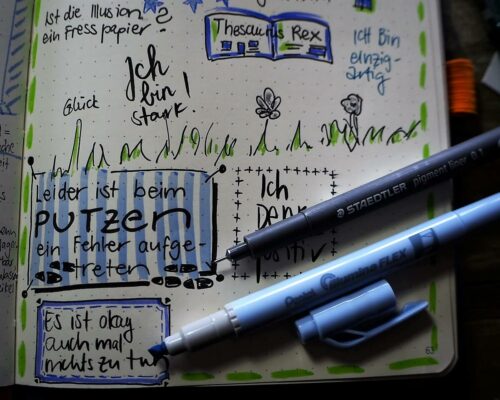 Ist die Illusion ?
ein Fress papier?
Thesaurus Rex
Ich Bin
einzig-
artig
Ich
bin !
stark
Glück
Leider ist beim
PUTZEN
ein Fehler aufge-
treten
Ich
positiv
STAEDTLER pigment liner 0.1
Pentel Illumina FLEX
Es ist okay
auch mal
nichts zu tun
63